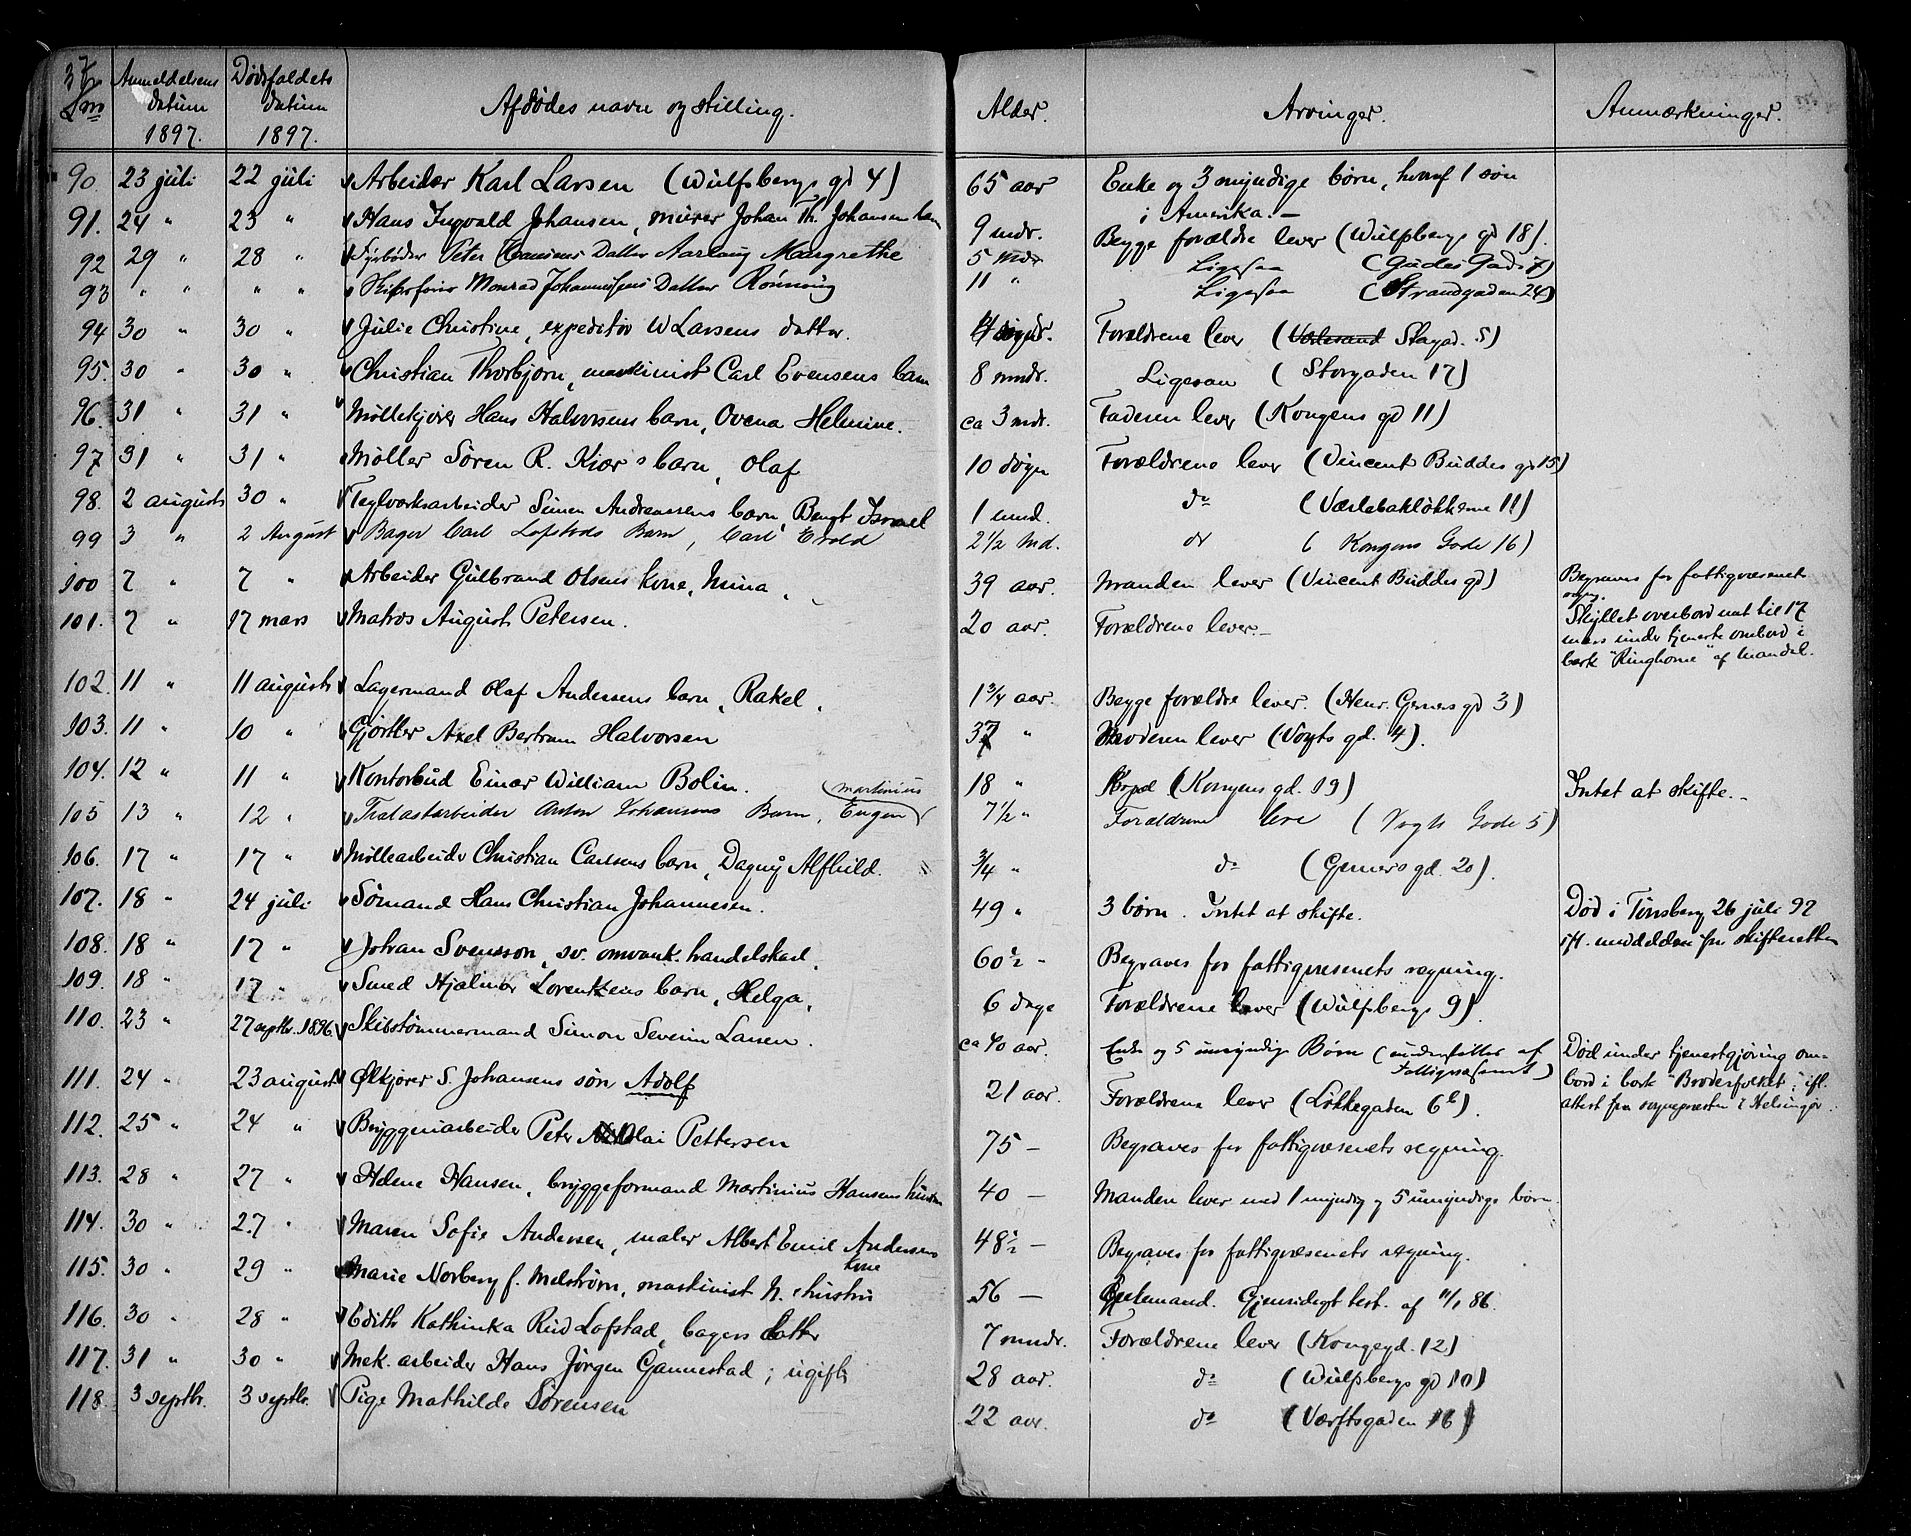 Anmeldelsens datum 1897. Dødsfaldets datum 1897. Afdødes navn og stilling. Alder. Arvinger. Anmærkninger.
90. 23 juli 22 juli Arbeider Karl Larsen (Wulfsbergs gd 4) 65 aar Enke og 3 myndige børn, hvoraf 1 søn
i Amerika.-
91. 24 " 23 " Hans Ingvald Johansen, murer Johan Th. Johansens barn 9 mdr. Begge forældre lever (Wulfsbergs gd 18).
92 29 " 28 " Fyrbøder Peter Datter Aarlaug Margrethe 5 mdr Ligesaa (Gudes Gade 7)
93 " " " " Skibsfører Monrad Johannesens Datter Rønnaug 11 " Ligesaa (Strandgaden 24)
94 30 " 30 " Julie Christine, expeditør W Larsens datter. Forældrene lever (Storgd. 5)
95. 30 " 30 " Christian Thorbjørn, maskinist Carl Evensens barn 8 mndr. Ligesaa (Storgaden 17)
96. 31 " 31 " Møllekjører Hans Halvorsens barn, Ovena Helmine. ca 3 mdr. Faderen lever (Kongens gd 11)
97 31 " 31 " Møller Søren R. Kiær's barn, Olaf 10 døgn Forældrene lever (Vincent Buddes gd 15)
98. 2 augusts 30 " Teglværksarbeider Simen Andreassens barn, Bengt Israel 1 mnd. do (Værlebakløkkerne 11)
99 3 " 2 August Bager Carl Lofstads Barn, Carl Evald 2 1/2 Md. do (Kongens Gade 16)
100 7 " 7 " Arbeider Gulbrand Olsens kone, Mina. 39 aar Manden lever (Vincent Buddes gd) Begraves for fattigvæsenets
regng.
101. 7 " 17 mars Matros August Petersen. 20 aar. Forældrene lever.- Skyllet overbord nat til 17
mars under tjeneste ombord i
bark "Ringhorne" af Mandal.
102. 11 " 11 augusts Lagermand Olaf Andersens barn, Rakel. 1 3/4 aar. Begge forældre lever. (Henr. Gerners gd 3)
103. 11 " 10 " Gjørtler Axel Bertram Halvorsen 37 " Moderen lever (Vogts gd. 4).
104. 12 " 11 " Kontorbud Einar William Bolin. 18 " (Kongens gd. 19) Intet at skifte.-
martinius
105 13 " 12 " Trælastarbeider Anton Johansens Barn, Eugen 7 1/2 " Forældrene leve (Vogts Gade 5)
106. 17 " 17 " Møllearbeider Christian Carlsens barn, Dagny Alfhild. 3/4 " do (Gerners gd. 20).
107. 18 " 24 juli Sømand Hans Christian Johannesen. 49 " 3 børn. Intet at skifte. Død i Tønsberg 26 juli 97
ifl. meddelelse fra skifteretten
108. 18 " 17 " Johan Svensson, sv. omvank. handelskarl. 60 1/2 - Begraves for fattigvæsenets regning.
109. 18 " 17 " Smed Hjalmar Lorentzens barn, Helga. 6 dage Forældrene lever (Wulfsbergs 9).
110. 23 " 27 septbr. 1896. Skibstømmermand Simon Severin Larsen. ca 40 aar. Enke og 5 umyndige Børn (understøttes af
Fattigvæsenet) Død under tjenestgjøring om-
bord i bark "Broderfolket", ifl.
attest fra sognepræsten i Helsingør.
111. 24 " 23 august Ølkjører S. Johansens søn Adolf 21 aar. Forældrene lever (Løkkegaden 6b).
112. 25 " 24 " Bryggeriarbeider Peter Nikolai Pettersen 75 - Begraves for fattigvæsenets regning.
113. 28 " 27 " Helene Hansen, bryggeformand Martinius Hansens hustru 40 - Manden lever med 1 myndig og 5 umyndige børn.
114. 30 " 27 " Maren Sofie Andersen, maler Albert Emil Andersens
kone 48 1/2 - Begraves for fattigvæsenets regning.
115. 30 " 29 " Marie Norberg f. Melstrøm, maskinist N.s hustru 56 - Gjensidigt test. af 11/1 86.
116. 30 " 28 " Edith Kathinka Rud Lofstad, bagers datter 7 mndr. Forældrene lever (Kongegd. 12)
117. 31 " 30 " Mek. arbeider Hans Jørgen Gannestad; ugift 28 aar. do (Wulfsbergs gd 10)
118. 3 septbr. 3 septbr. Pige Mathilde Sørensen 22 aar. do (Værftsgaden 16)